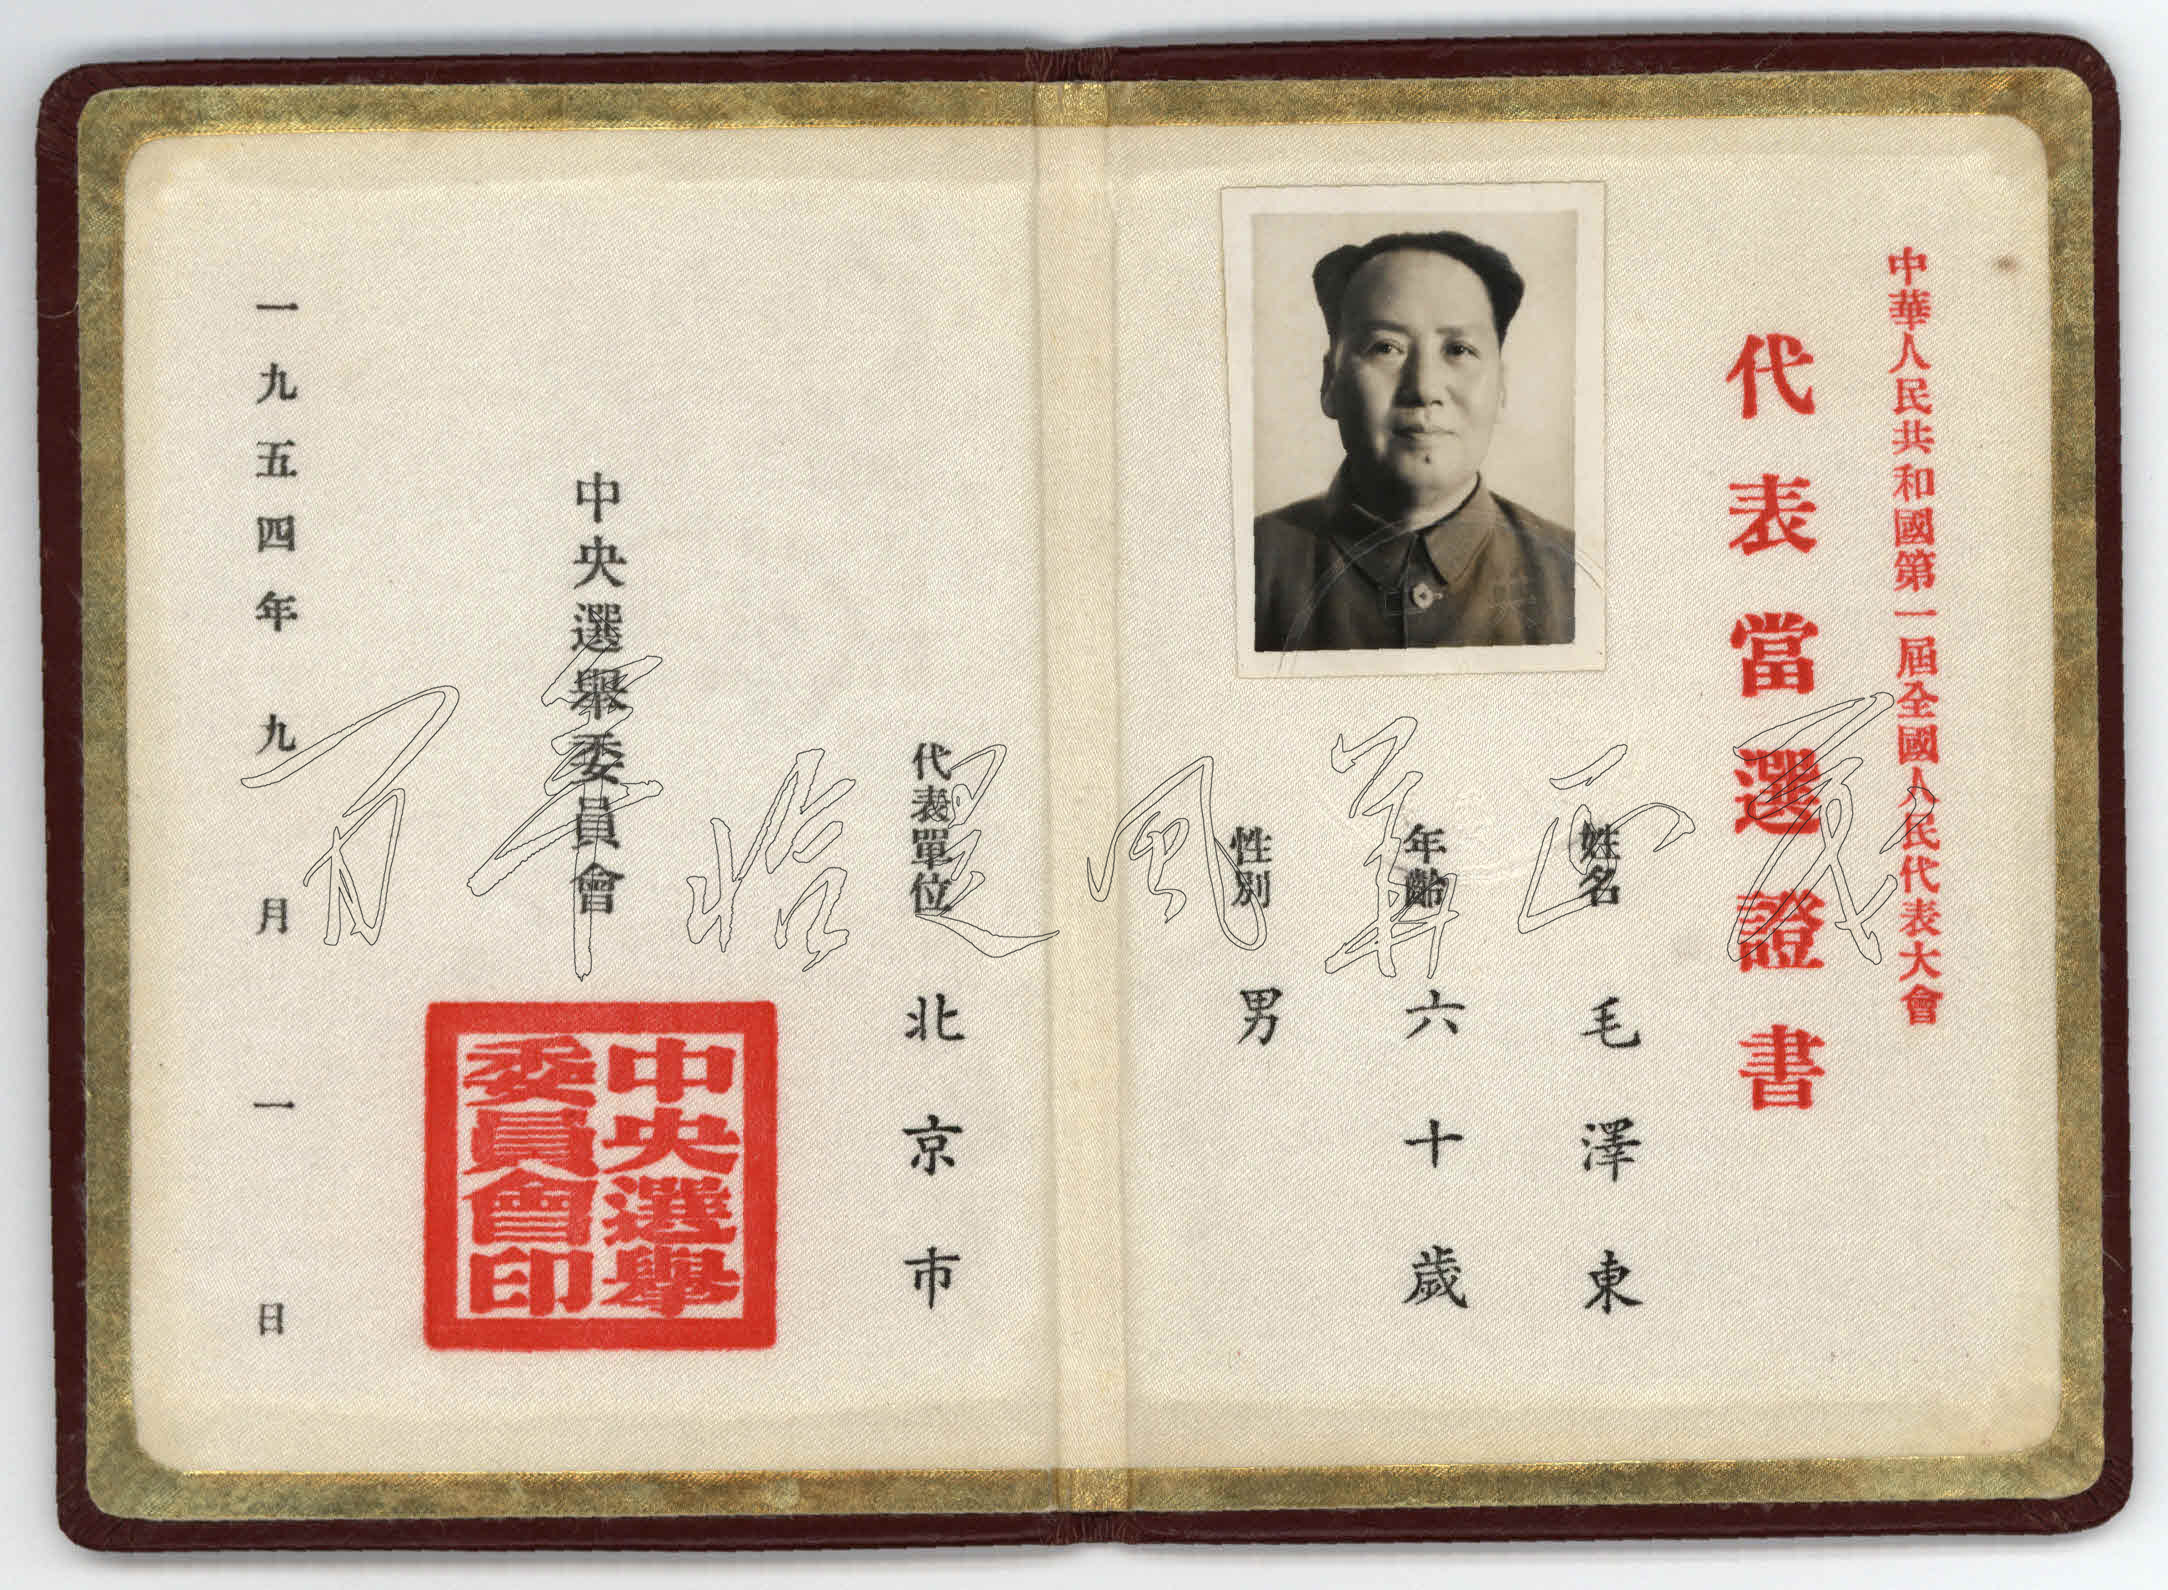 中華人民共和國第一屆全國人民代表大會
代表當選證書
姓名 毛澤東
年齡 六十歲
性別 男
代表單位 北京市
中央選舉委員會
中央選舉
委員會印
一九五四年九月一日
百年恰是风华正茂